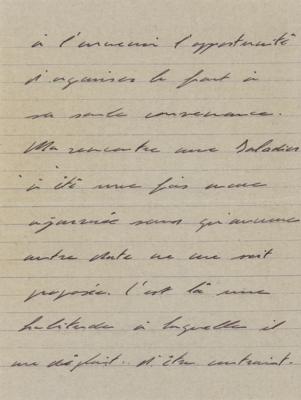 à l'ennemi l'opportunité
d'organiser le front à
sa seule convenance.
Ma rencontre avec Daladier
a été une fois encore
ajournée sans qu'aucune
autre date ne me soit
proposée. C'est là une
habitude à laquelle il
me déplait.. d'être contraint.